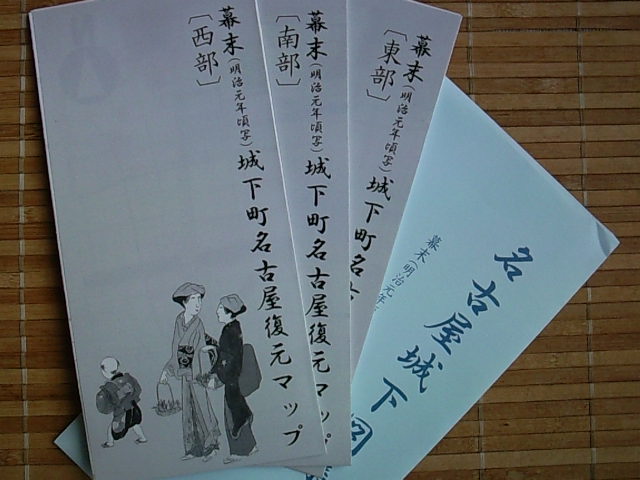 幕末(明治元年頃写)城下町名古屋復元マップ
〔西部〕
幕末(明治元年頃写)城下町名古屋復元マップ
〔南部〕
幕末(明治元年頃写)城下町名古
〔東部〕
名古屋城下図
幕末(明治元年